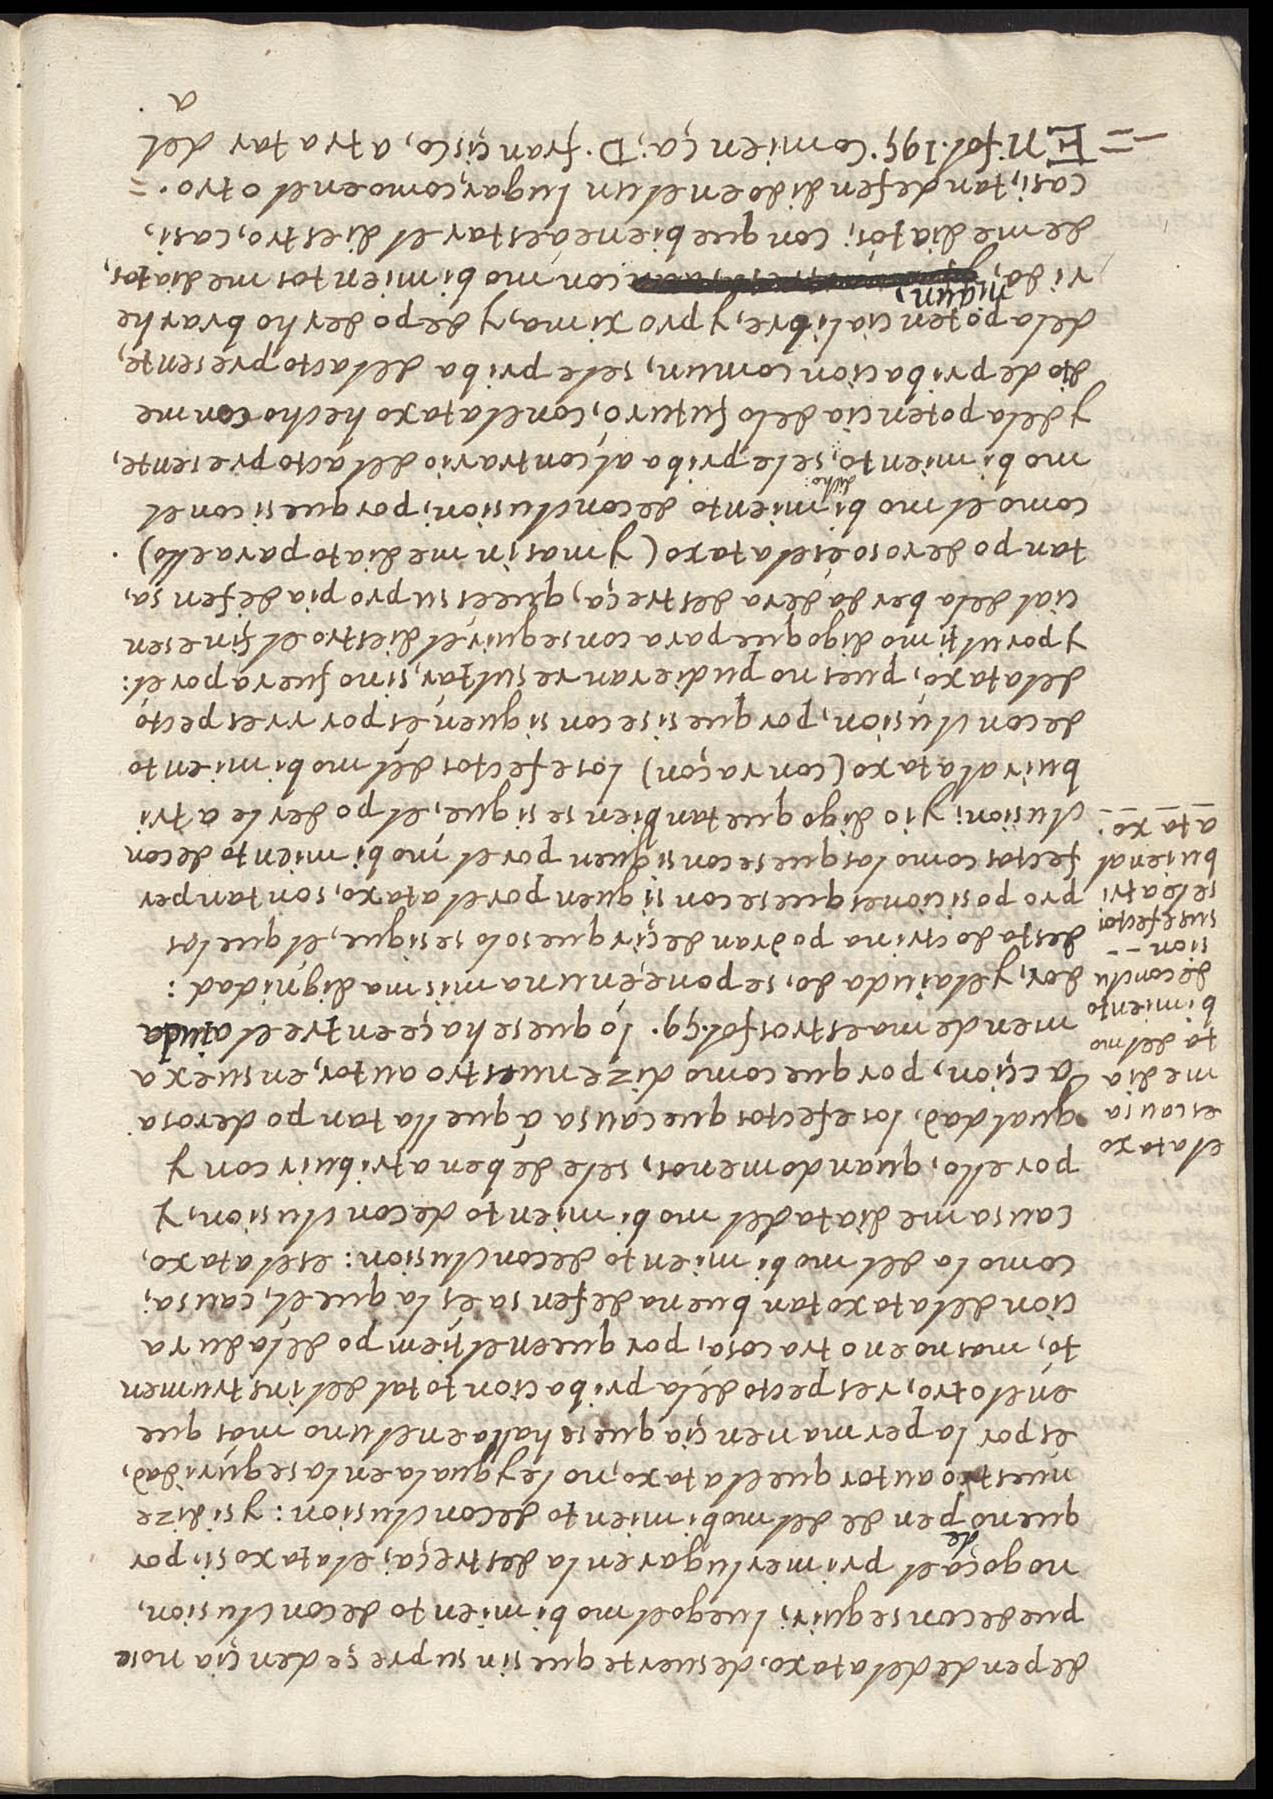 depende del ataxo, de suerte que sin su preçedençia no se
puede conseguir; luego el mobimiento de conclusion,
no goça el primer lugar en la destreça; el ataxo si; por
que no depende del mobimiento de conclusion: y si dize
nuestro autor que el ataxo, no le yguala en la seguridad,
es por la permanençia que se halla en el uno mas que
en el otro, respecto de la pribacion total del instrumen
to, mas no en otra cosa, porque en el tiempo de la dura
cion del ataxo tan buena defensa es la que el, causa;
como la del mobimiento de conclusion: es el ataxo,
causa mediata del mobimiento de conclusion, y
por ello, quando menos, se le deben atribuir con y
gualdad, los efectos que causa á quella tan poderosa
acçion, porque como dize nuestro autor, en su exa
men de maestros fol. 59. lo que se haçe entre el aiuda
dor, y el aiudado, se pone, en una misma dignidad:
desta doctrina podran deçir que solo se sigue, el que las
proposiciones que se consiguen por el ataxo, son tan per
fectas como las que se consiguen por el mobimiento de con
clusion; y io digo que tanbien se sigue, el poderle atri
buir al ataxo (con raçon) los efectos del mobimiento
de conclusion, porque si se consiguen, es por respecto
del ataxo, pues no pudieran resultar, si no fuera por el:
y por ultimo digo que para conseguir el diestro el fin esen
cial de la berdadera destreça, que es su propia defensa,
tan poderoso es el ataxo (y mas inmediato para ello)
como el mobimiento de conclusion; porque si con el
dicho:
mobimiento, se le priba al contrario del acto presente,
y de la potencia de lo futuro, con el ataxo hecho con me
dio de pribacion comun, se le priba del acto presente,
de la potencia libre, y proxima, y de poder hobrar he
rida, nigun, con mobimientos mediatos,
de mediatos; con que biene á estar el diestro, casi,
casi, tan defendido en el un lugar, como en el otro. =
= EN fol. 195. Comiença, D. françisco, a tratar del
a
el ataxo
es causa
media
ta del mo
bimiento
de conclu
sion --
sus efectos
se le atri
buien al
ataxo.